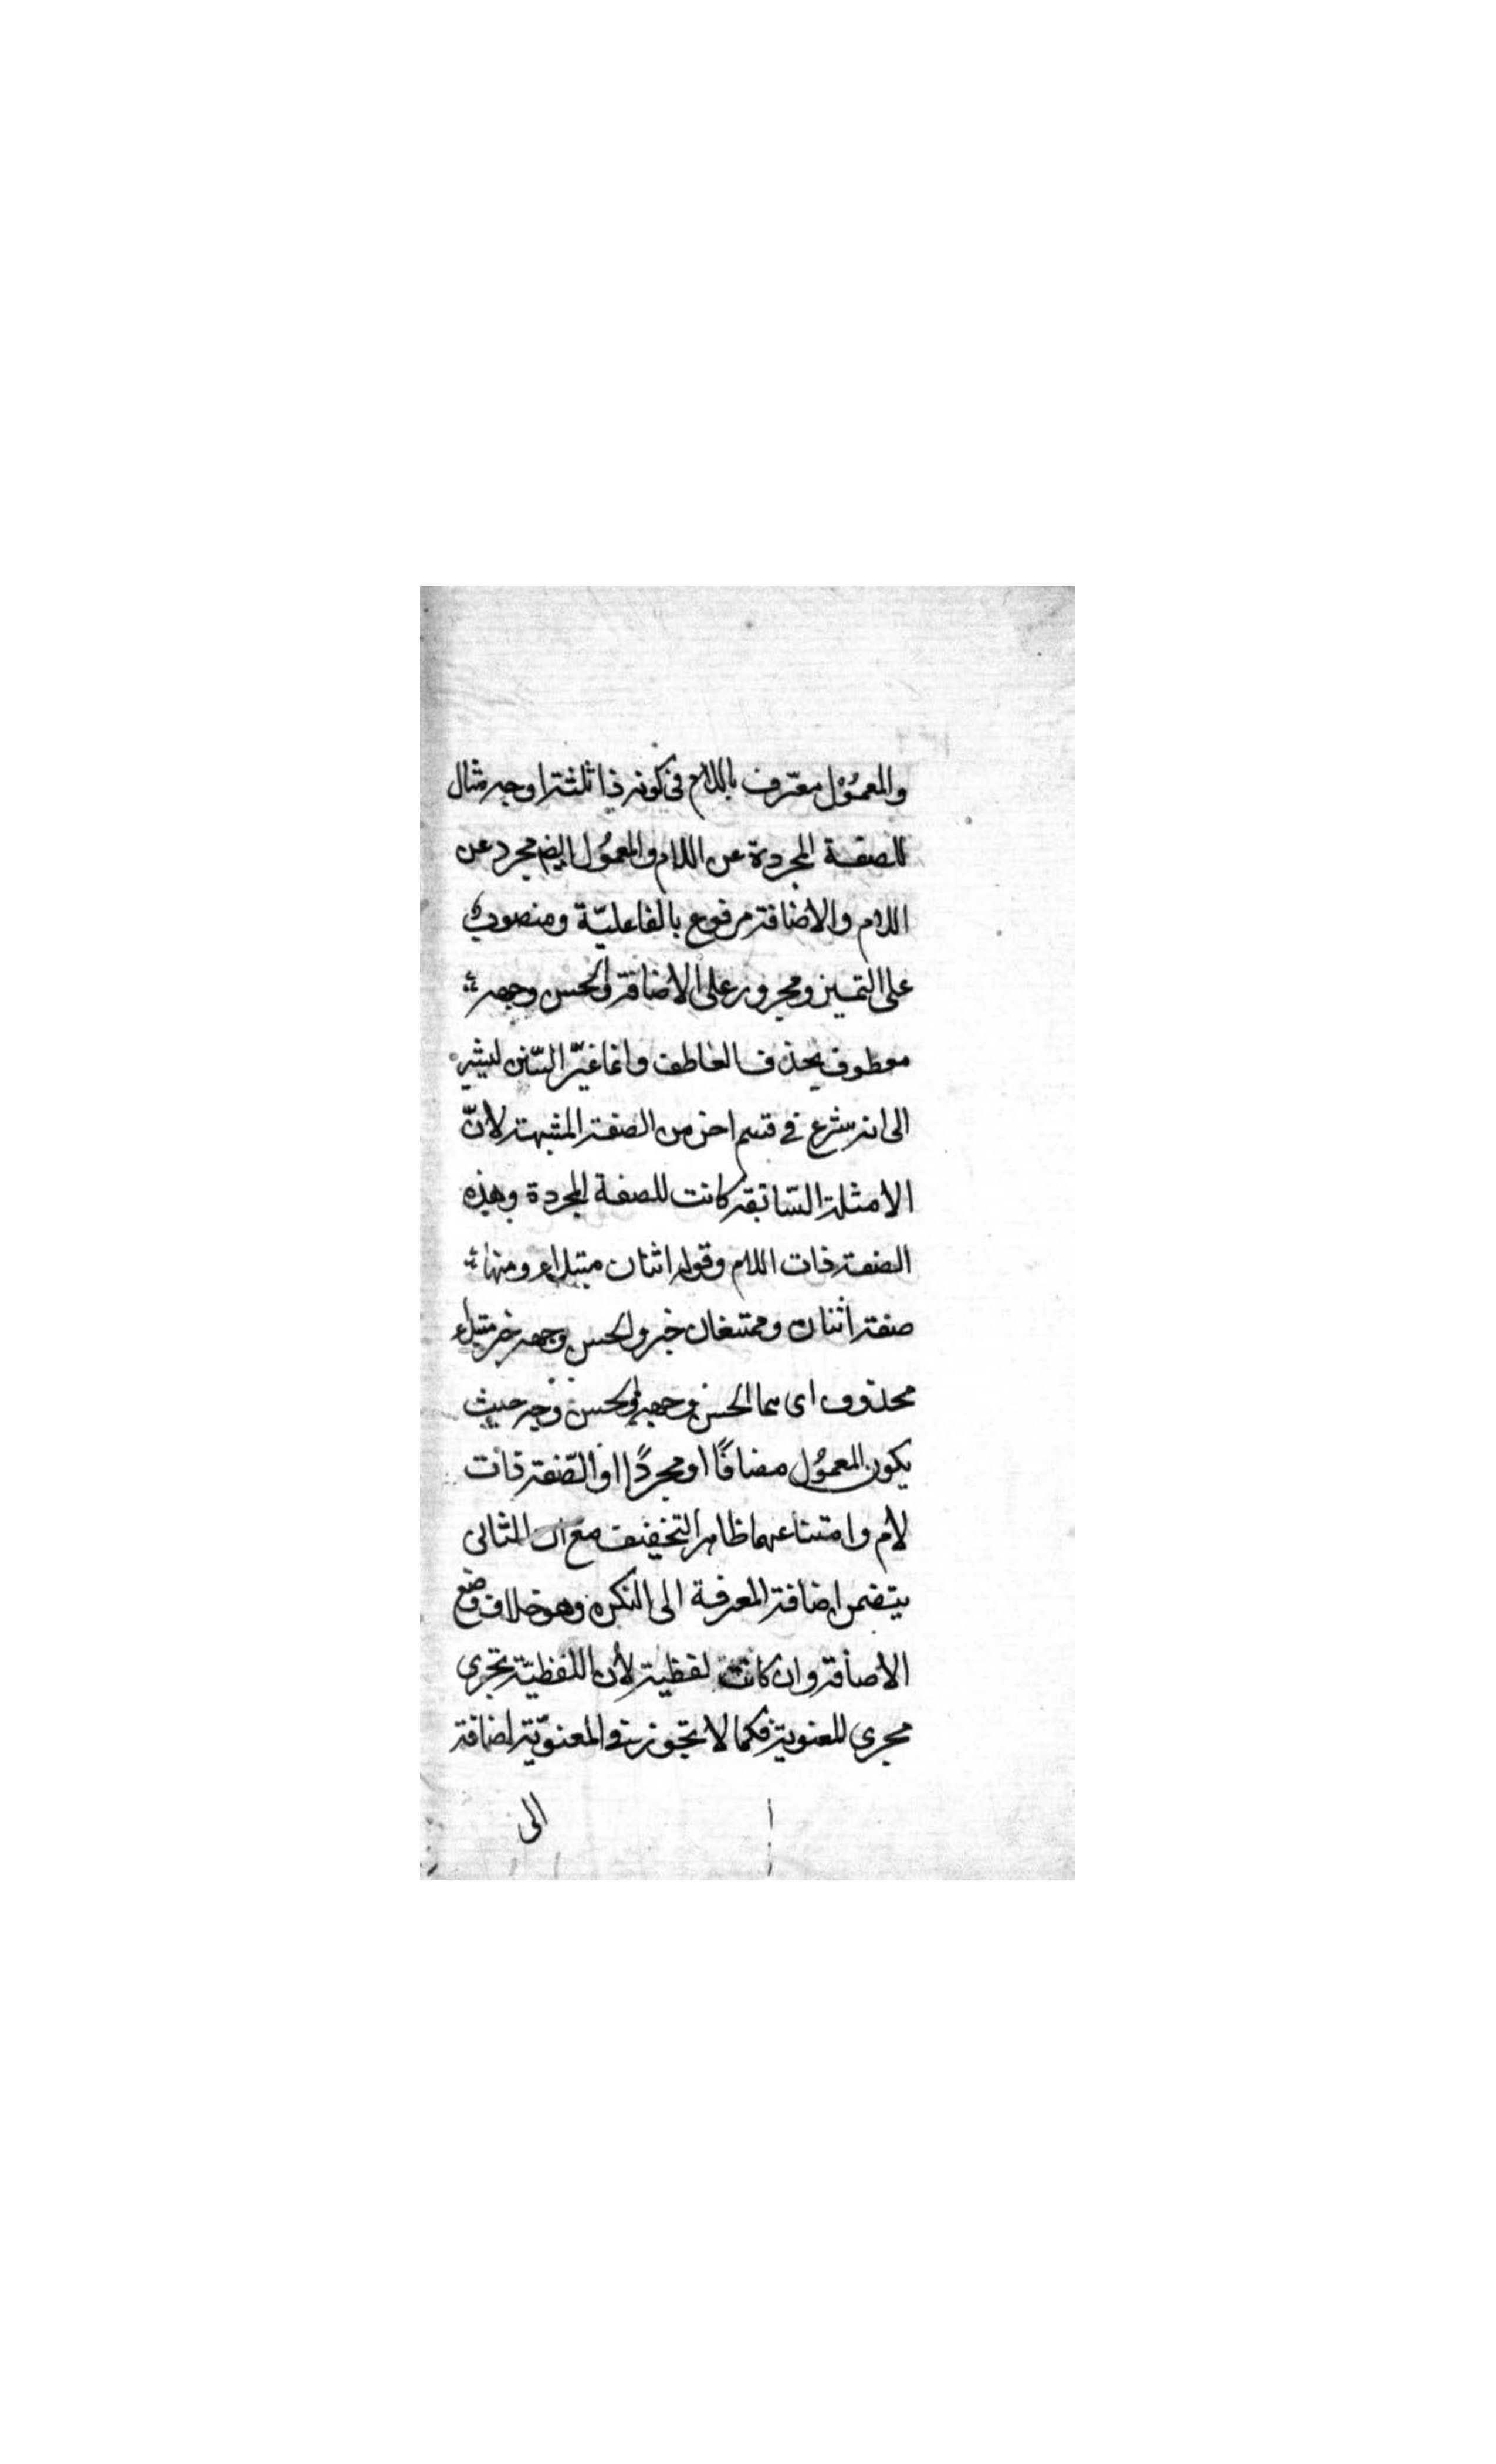 والمعمُوْل معّرف باللام في كونه ذا ثلثة اوجه مثال
للصفة المجردة عن اللام والمعمُول ايضا مجرد عن
اللام والاضافة مرفوع بالفاعليّة ومنصوب
على التميز ومجرور على الاضافة والحسن وجهه
معطوف بحذف العاطف وانما غيّر السّنن ليشير
الى انه يشرع في قسم اخر من الصفة المشبهة لانّ
الامثلة السّابقة كانت للصفة المجردة وهذه
الصفة ذات اللام وقوله اثنان مبتداء ومنها
صفة اثنان وممتنعان خبر والحسن وجهه خبر مبتداء
محذوف اى هما الحسن وجهه والحسن وجه حيث
يكون المعموُل مضافًا او مجردًا او الصّفة ذات
لام وامتناعهما ظاهر التخفيف مع ان الثانى
يتضمن اضافة المعرفة الى النكرة وهو خلاف وضع
الاضافة وان كانت لفظية لأن اللفظيّة تجرى
مجرى للمعنوية فكما لا تجوز في المعنويّة اضافة
الى